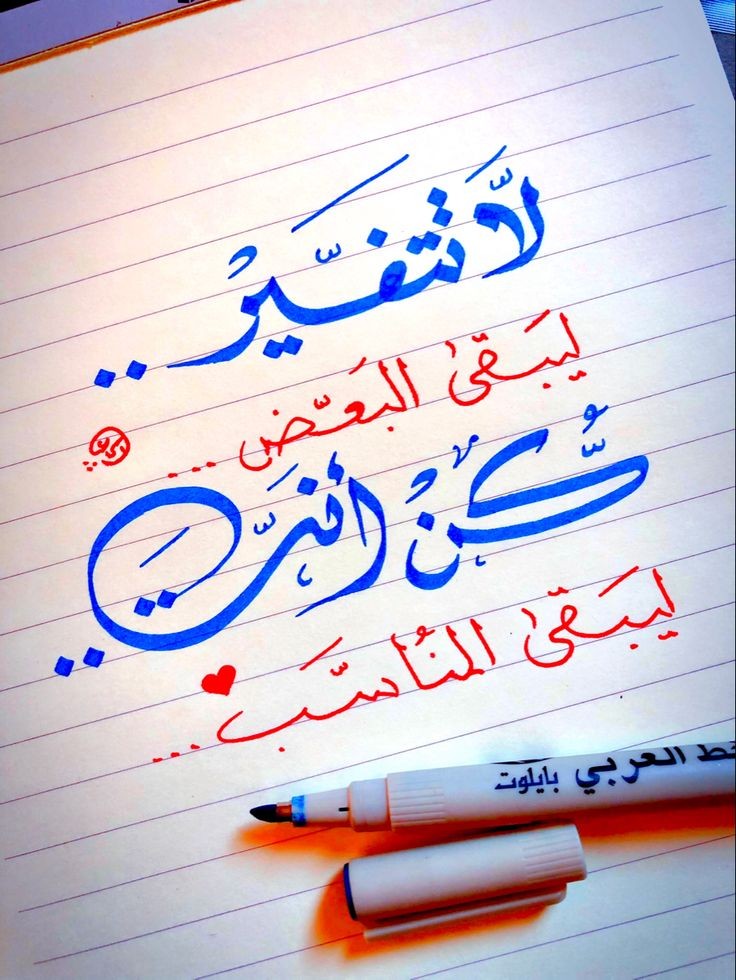 لَّا تتغيَّرْ ..
ليبَقىٰ البَعَّض ...
كُّنْ أنتَّ ..
ليبَقىٰ المنُاسَّب ...
خط العربي بايلوت